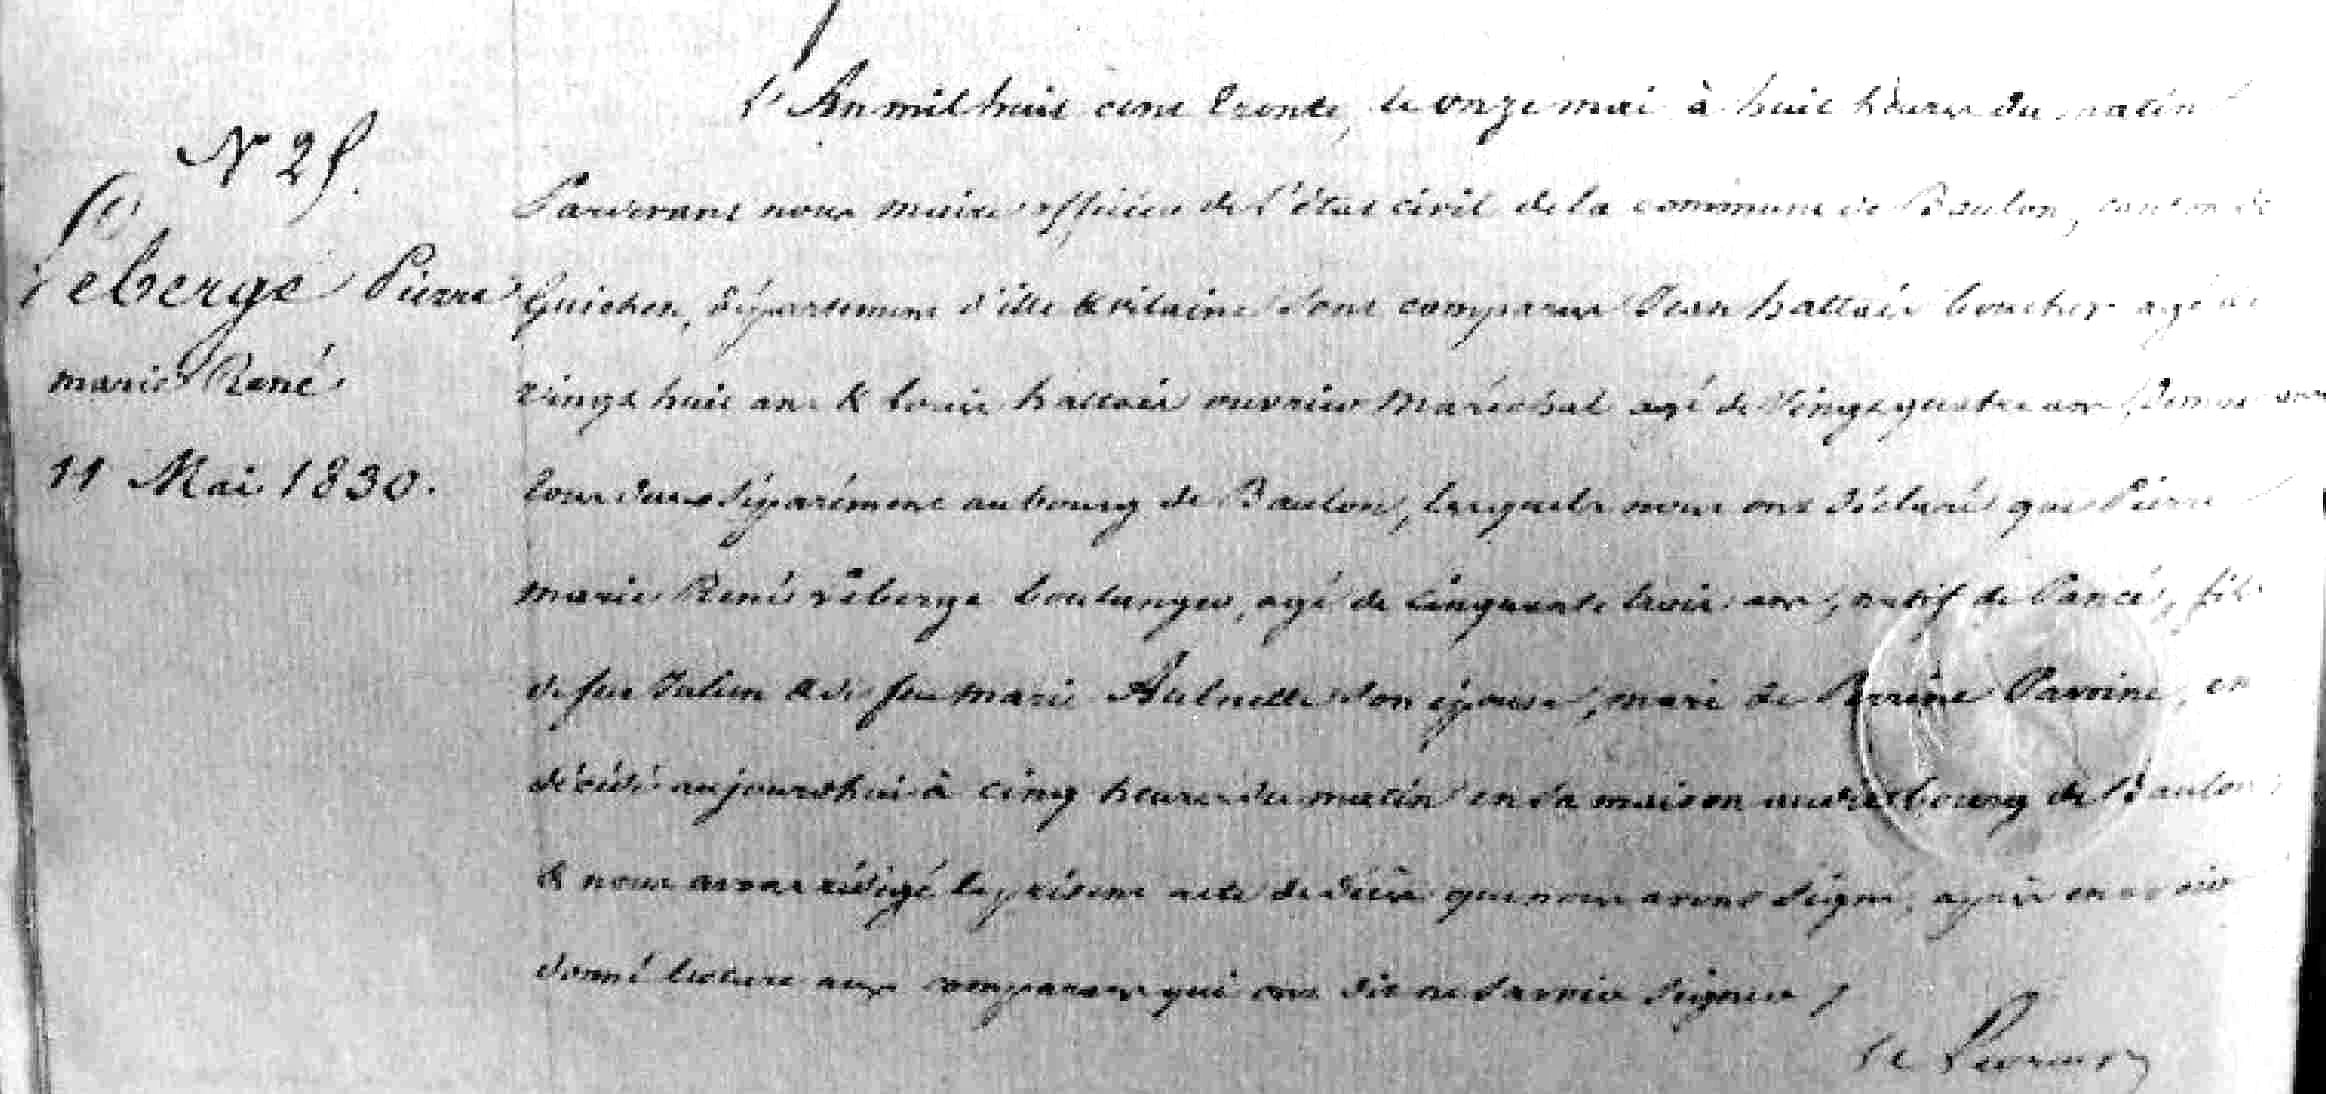 L'An mil huit cent trente, le onze mai à huit heures du matin
N 25.
Pardevant nous maire officier de l'état civil de la commune de Baulon, canton de
Réberge Pierre
Guichen, département d'ille & vilaine sont comparus Jean hallais boucher agé de
marie René
vingt huit ans & louis hallais ouvrier maréchal agé de vingt quatre ans, demeurant
11 Mai 1830.
tous deux séparément au bourg de Baulon, lesquels nous ont déclaré que Pierre
marie René réberge boulanger, agé de cinquante trois ans, natif de Pancé, fils
de feu Julien & de feu marie Aulnette son épouse, mari de Perrine Pavoine, est
décédé aujourdhui à cinq heures du matin en sa maison audit bourg de Baulon
& nous avons rédigé le présent acte de décès que nous avons signé, après en avoir
donné lecture aux comparans qui ont dit ne savoir signer /